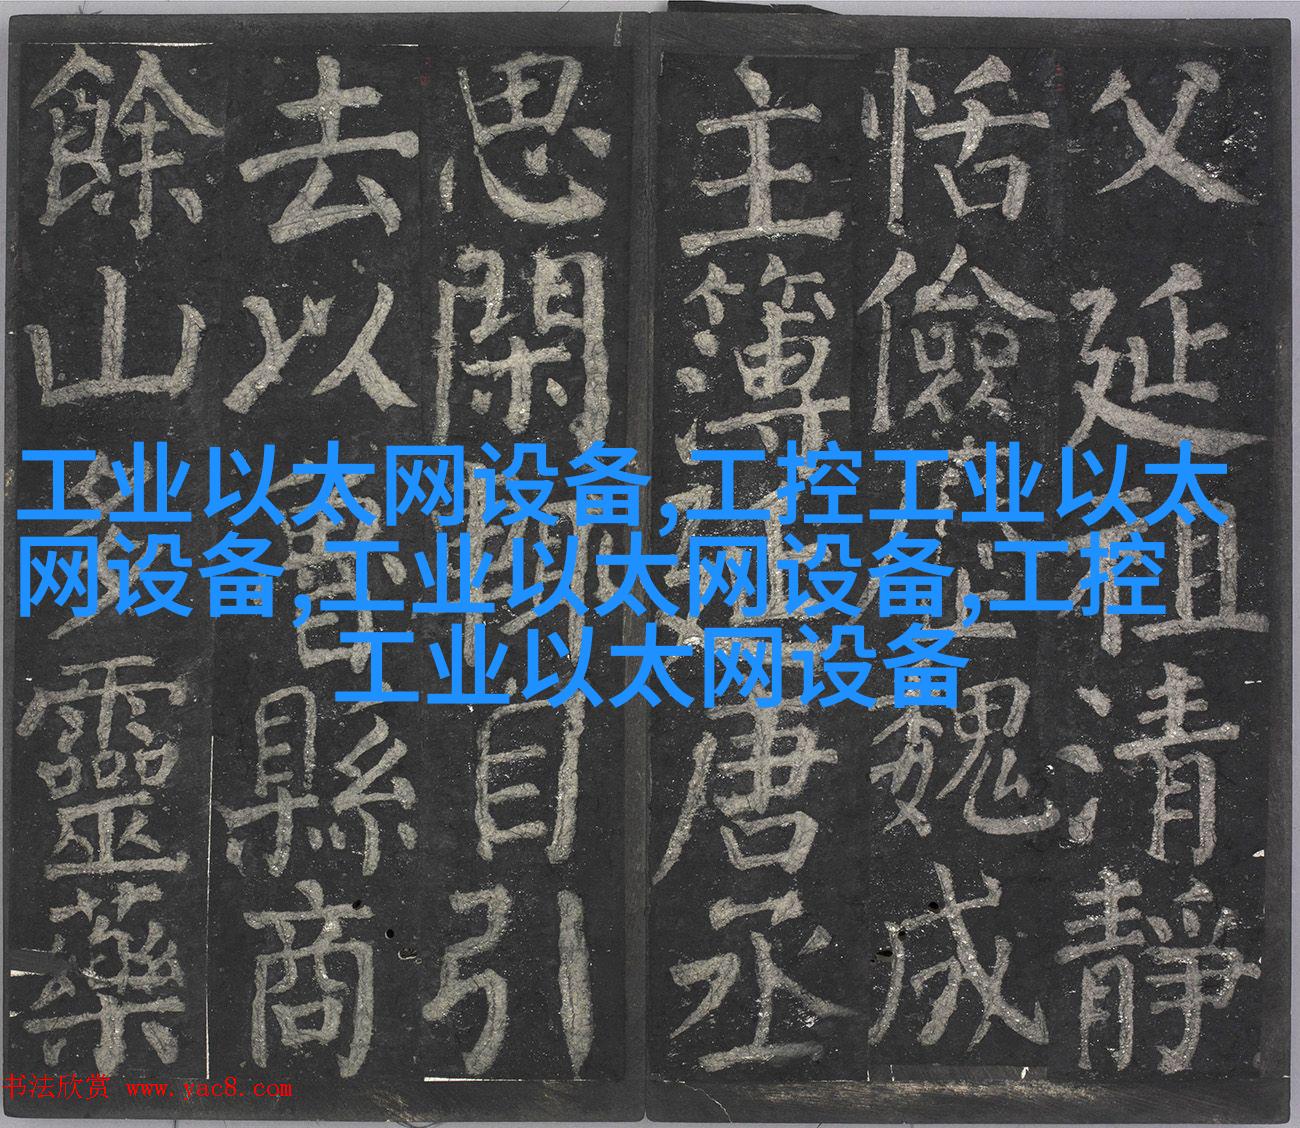 父延祖清靜
恬儉歷魏成
主簿唐丞
思閑自引
去以魯縣商
餘山多靈藥
工业以太网设备,工控工业以太
网设备,工业以太网设备,工控
工业以太网设备
书法欣赏 www.yac8.com